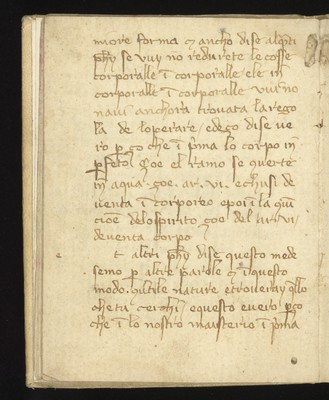 miore forma 
ph̄y se vuy no redurete le cosse
corporalle ī corporalle ele inˉ
corporalle ī corporalle vui no
navi anchora trovata la rego
la de loperare / e dego dise ve
ro p̱ço che ī p̄ma lo corpo in
p̱feto çoe el ramo se querte
in aqua · çoe · ar · vi · e chusi de
venta ī corporeo e poi ī la
cioē delo spirito çoo del ar vi
deventa corpo
t altri ph̄y dise questo mede
semo p̱ altre parole ilquesto
modo · nature e troveray
che tu cerchi / e questo e vero p̱ço
che ī lo nostro maisterio ī p̄ma